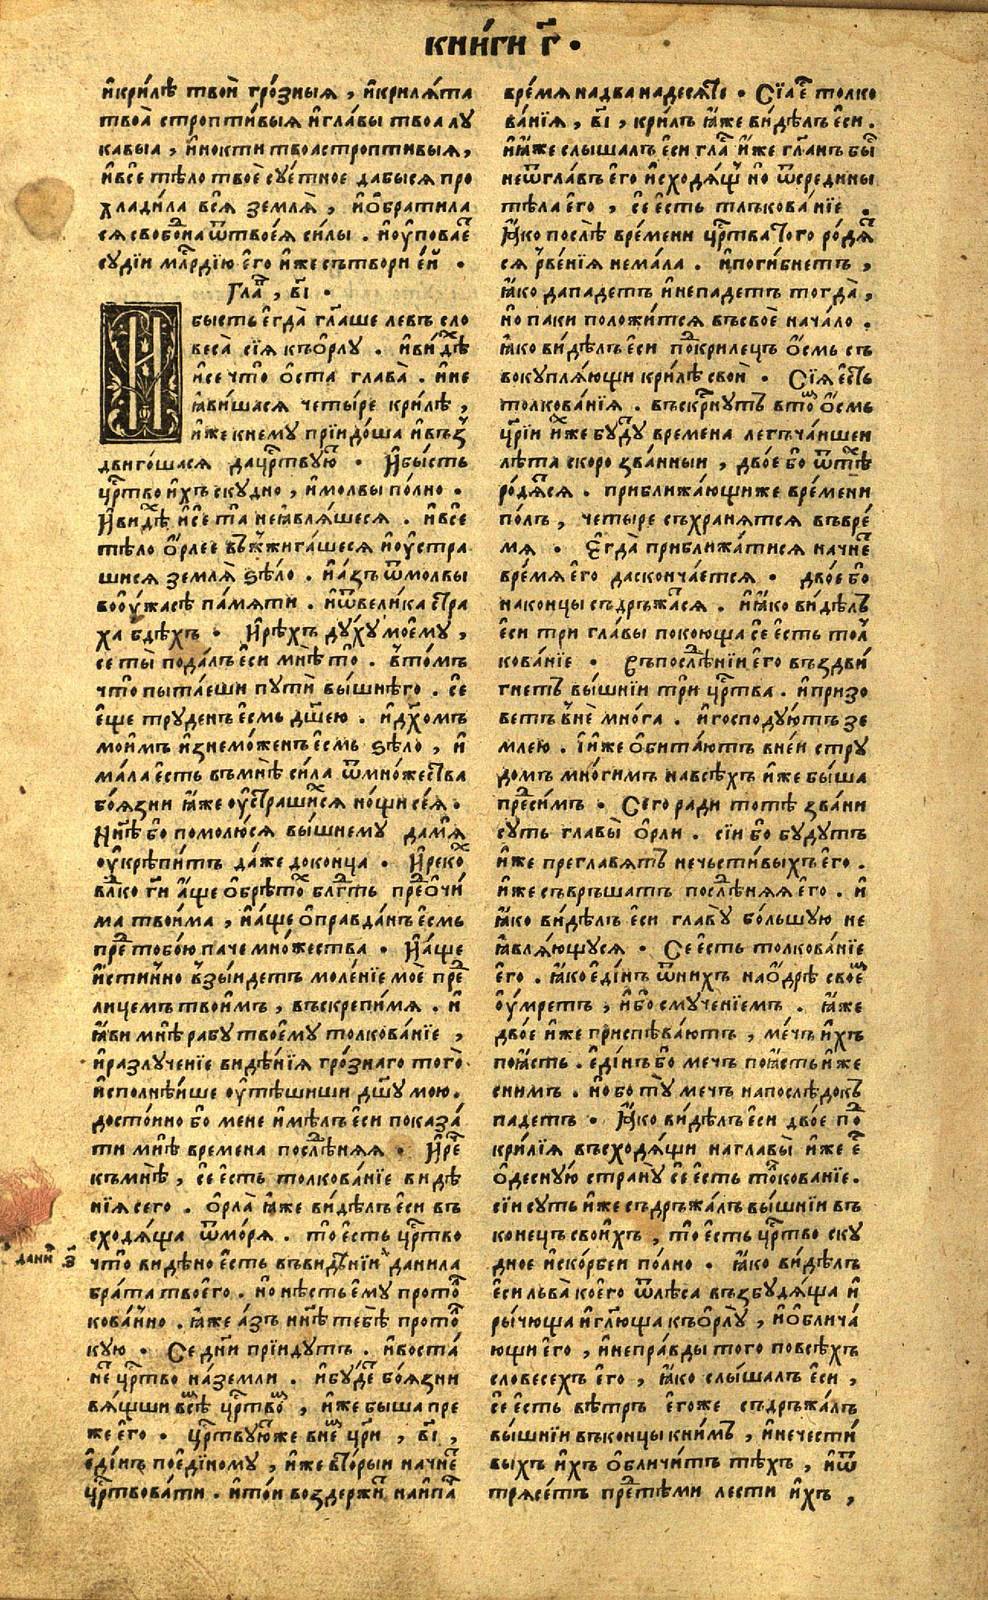 КНИ́ГИ Г҃ ·
и҆кри́лѣ твоѝ гро́зныѧ , и҆крилѧ́та
твоѧ̀ стропти́выѧ и҆гла́вы твоѧ лу
кавыѧ , и҆нокти твоѧстроптивыѧ ,
и҆всѐ тѣло твоѐ суе́тное дабысѧ про
хлади́ла всѧ̀ землѧ̀ , и҆о҆братила
сѧсвобоⷣна ѿтвоеѧ́ си́лы . и҆оу҆повае҆ⷮ
суді́и млⷭ҇рдїю є҆го̀ и҆же сътвори є҆и́ ·
Глаⷡ҇ , в҃і ·
бысть є҆гда̀ гл҃аше левъ сло
веса̀ сїѧ̀ къо҆рлу̀ . и҆ви́дѣⷯ
и҆се что̀ о҆ста глава̀ . и҆не
ꙗ҆ви́шасѧ четы́ре крилѣ̀ ,
и҆же кнему прїидо́ша и҆въз̾
двиго́шасѧ дацрⷭ҇твуюⷮ · И҆бы́сть
црⷭ҇тво и҆́хъ ску́дно , и҆молвы по́лно ·
И҆ви́дѣⷯ и҆сѐ та̀ неꙗ҆влѧ́шесѧ . и҆всѐ
тѣло о҆́рлее въжжига́шесѧ и҆оу҆стра
шисѧ землѧ̀ ѕѣло̀ . и҆а́зъ ѿмолвы̀
воо҆у́жасѣ па́мѧти . и҆ѿвели́ка стра
ха бдѣ́хъ · И҆рѣ́хъ ду́ху моє́му ,
се ты̀ пода́лъ є҆си мнѣ̀ то̀ . в̾то́мъ
что̀ пыта́еши путѝ вы́шнѧго . сѐ
є҆ще труденъ є҆смь дш҃ею . и҆дх҃омъ
мои́мъ и҆знемо́женъ є҆смь ѕѣло̀ , и҆
ма́ла є҆сть въмнѣ̀ си́ла ѿмно́жества
боѧ́зни ꙗ҆́же оу҆страши́хсѧ но́щи сеѧ̀ ·
Нн҃ѣ бо помолю́сѧ вы́шнему да́мѧ
оу҆крѣпи́тъ да́же доконца̀ · И҆реко́ⷯ
влⷣко гд҃и а҆́ще о҆брѣто́ⷯ блгⷣть преⷣо҆чи́
ма твои́ма , и҆а́ще о҆правда́нъ є҆смь
преⷣ тобо́ю паче мно́жества · И҆а́ще
и҆стинно в̾зы́идетъ моле́нїе моѐ преⷣ
лице́мъ твои́мъ , въскрепи́мѧ . и҆
ꙗ҆ви́ мнѣ̀ рабу̀ твоє́му толкова́нїе ,
и҆разлуче́нїе видѣ́нїѧ гро́знаго того̀
и҆сполнѣ́йше оу҆тѣши́ши дш҃у мою̀ .
досто́ино бо мене и҆мѣ́лъ є҆си показа́
ти мнѣ̀ времена послѣⷣнѧѧ · И҆речѐ
къмнѣ̀ , сѐ є҆сть толкова́нїе видѣ́
нїѧ сего . о҆рла̀ ꙗ҆же ви́дѣлъ є҆си въ
сходѧ́ща ѿмо́рѧ . то̀ є҆сть црⷭ҇тво
что̀ видѣно є҆сть въвидѣ́нїи да̀нила
бра́та твоего̀ . но нѣ́сть є҆му протоⷧ
кова́нно . ꙗ҆же а́зъ нн҃ѣ тебѣ̀ протоⷧ
кую · Се днѝ прїидутъ . и҆воста́
неⷮ црⷭ҇тво на́земли . и҆бу́деⷮ боѧ́зни
вѧ́щши всѣⷯ црⷭ҇твоⷯ , и҆же быша пре
же є҆го · црⷭ҇твую́тже вне́мъ цр҃и , в҃і ,
є҆ди́нъ поє҆ди́ному , и҆же вто́рыи начнеⷮ
црⷭ҇твова́ти . и҆то́и воздержи́ⷮ наипаⷱ҇
дани҆ⷧ , з҃
вре́мѧ надвана́десѧте · Сїѧ є҆ⷭ толко
ва́нїѧ , в҃і , кри́лъ ꙗ҆же ви́дѣлъ є҆си .
и҆ꙗ҆́же слышалъ є҆си глаⷭ и҆же гл҃анъ быⷭ
неѿглавъ є҆го и҆сходѧ́щь но ѿсредины
тѣ́ла є҆го , сѐ є҆сть тлъкова́нїе .
Ꙗ҆́ко послѣ̀ вре́мени црⷭ҇тва того роⷣѧⷮ
сѧ рве́нїѧ нема́ла . и҆поги́бнетъ ,
ꙗ҆́ко дападетъ и҆непадетъ тогда̀ ,
но паки положи́тсѧ въсвоѐ нача́ло .
ꙗ҆́ко ви́дѣлъ є҆си поⷣкрилецъ о҆́смь съ
вокуплѧ́ющи кри́лѣ свои̇ · Сїѧ є҆сть
толкова́нїѧ . въскрⷭнутъ втоⷨ о҆́смь
цр҃їи и҆же бу́дуⷮ времена легъча́ишеи
лѣ́та скоро зва́нныи , дво́е бо ѿтѣⷯ
роⷣѧ́тсѧ . приближа́ющиже вре́мени
по́лъ , четыре съхранѧ́тсѧ въвре́
мѧ · Є҆гда̀ приближа́тисѧ начнеⷮ
вре́мѧ є҆го даскончае́тсѧ · дво́е бо
наконцы̀ съдръжа́тсѧ . и҆ꙗ҆́ко ви́дѣлъ
є҆си три гла́вы покоюща сѐ є҆сть толⷦ
кова́нїе · Въпослѣⷣнїи є҆го въздви́
гнетъ вы́шнїи три црⷭ҇тва . и҆призо
ветъ в̾нѐ мно́га . и҆господую́тъ зе
млею . и҆́же о҆бита́ютъ вне́и стру
домъ мно́гимъ навсѣ́хъ и҆́же бы́ша
преⷣсимъ · Сего ради тотѣ зва́ни
суть главы̀ о҆рли . сїи бо будутъ
и҆же преглавѧтъ нечьсти́выхъ є҆го .
и҆же съвръшатъ послѣⷣнѧѧ є҆го . и҆
ꙗ҆́ко ви́дѣлъ є҆си главу̀ бо́льшую не
ꙗ҆влѧ́ющусѧ · Се є҆сть толкова́нїе
є҆го . ꙗ҆́ко є҆ди́нъ ѿнихъ нао҆дрѣ̀ своеⷨ
оу҆мретъ , и҆бо смуче́нїемъ . ꙗ҆́же
дво́е и҆же приспѣва́ютъ , ме́чъ и҆хъ
поꙗ҆́сть . є҆ди́нъ бо мечъ поꙗ҆сть и҆же
снимъ . но бо ту̀ мечъ напослѣ́докъ
падетъ · Ꙗ҆́ко ви́дѣлъ є҆си дво́е поⷣ
кри́лїѧ въсходѧ́щи наглавы̀ и҆же є҆ⷭ
о҆десну́ю страну̀ сѐ є҆сть тоⷧкова́нїе .
сїи суть и҆же съдръжа́лъ вы́шнїи въ
конецъ свои́хъ , то̀ є҆сть црⷭ҇тво ску́
дное и҆ско́рбеи по́лно · ꙗ҆́ко ви́дѣлъ
є҆си льва̀ коего ѿлѣ́са възбудѧ́ща и҆
рычю́ща и҆гл҃юща къо҆рлу̀ , и҆о҆блича́
ющи є҆го , и҆непра́вды того повсѣ́хъ
словесехъ є҆го , ꙗ҆́ко слы́шалъ є҆си ,
сѐ є҆сть вѣ́тръ є҆го́же съдръжа́лъ
вы́шнїи въконцы кни́мъ , и҆нечести́
выхъ и҆́хъ о҆бличи́тъ тѣ́хъ , и҆ѿ
трѧсе́тъ преⷣтѣ́ми ле́сти и҆́хъ ,